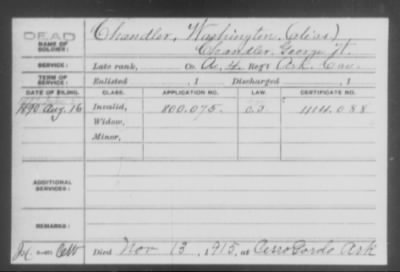 DEAD
NAME OF SOLDIER: Chandler, Washington, (alias)
Chandler, George W.
SERVICE: Late rank, Co. A, 4. Reg't Ark. Cav.
TERM OF SERVICE: Enlisted , 1 Discharged , 1
DATE OF FILING. CLASS. APPLICATION NO. LAW. CERTIFICATE NO.
1890 Aug. 16 Invalid, 800.075. 1114.088
Widow,
Minor,
ADDITIONAL SERVICES:
REMARKS:
Died Nov 13, 1915, at Cerro Gordo Ark